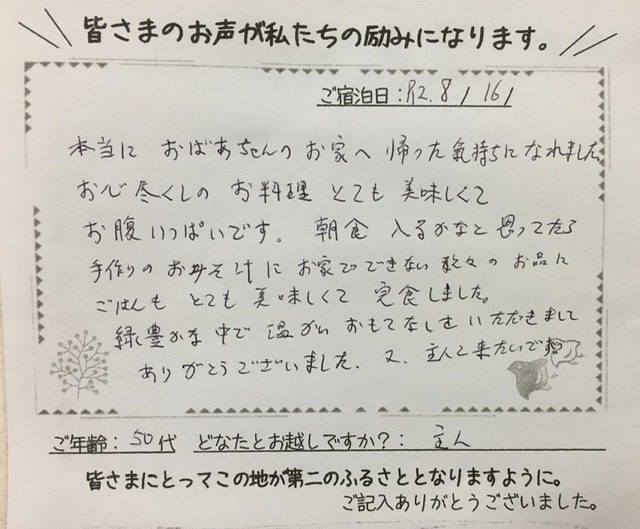 皆さまのお声が私たちの励みになります。
ご宿泊日:R2.8/16/
本当に おばあちゃんの お家へ 帰った気持ちになれました
お心尽くしの お料理 とても 美味しくて
お腹いっぱいです。 朝食 入るかなと思ってたら
手作りの おみそ汁に お家でできない数々の お品に
ごはんも とても 美味しくて 完食しました。
緑豊かな 中で 温かい おもてなしを いただきまして
ありがとうございました. 又、主人と来たいです
ご年齢: 50代 どなたとお越しですか?: 主人
皆さまにとってこの地が第二のふるさととなりますように。
ご記入ありがとうございました。